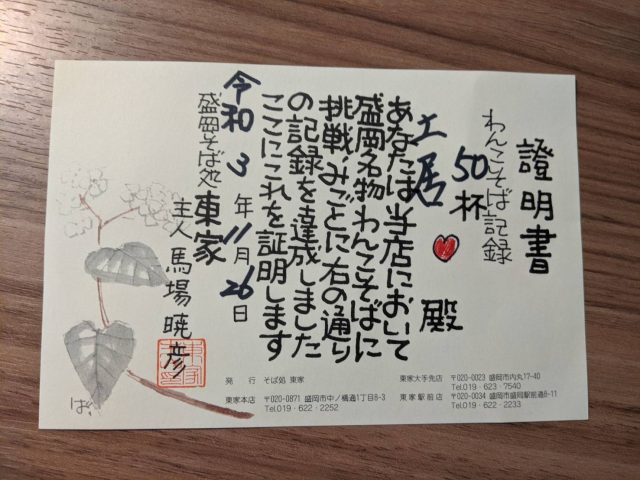 證明書
わんこそば記録
50杯
土居♥殿
あなたは当店において
盛岡名物わんこそばに
挑戦、みごとに右の通り
の記録を達成しました
ここにこれを証明します
令和3年11月26日
盛岡そば処 東家
主人 馬場暁彦
ば
発行 そば処 東家
東家本店 〒020-0871 盛岡市中ノ橋通1丁目8-3
Tel.019・622・2252
東家大手先店 〒020-0023 盛岡市内丸17-40
Tel.019・623・7540
東家駅前店 〒020-0034 盛岡市盛岡駅前通8-11
Tel.019・622・2233